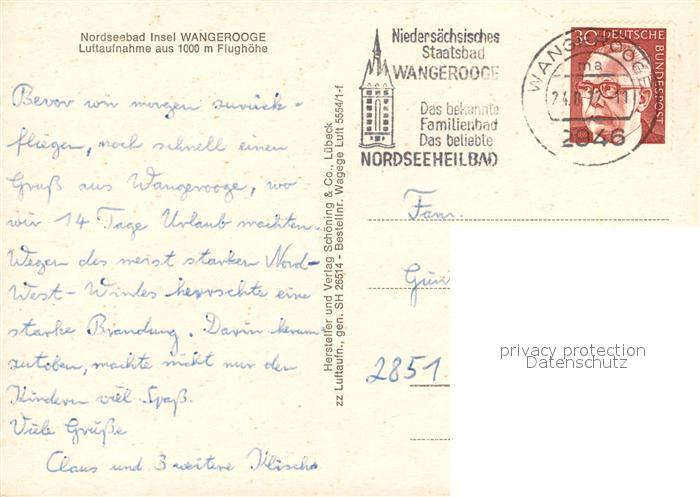 Nordseebad Insel WANGEROOGE
Luftaufnahme aus 1000 m Flughöhe
Bevor wir morgen zurück-
fliegen, noch schnell einen
Gruß aus Wangerooge, wo
wir 14 Tage Urlaub machten.
Wegen des meist starken Nord-
West-Windes herrschte eine
starke Brandung. Darin herum-
zutoben, machte nicht nur den
Kindern viel Spaß.
Viele Grüße
Claus und 3 weitere
Hersteller und Verlag Schöning & Co., Lübeck
zz Luftaufn., gen. SH 26514 - Bestellnr. Wagege Luft 5554/1-f
Niedersächsisches
Staatsbad
WANGEROOGE
Das bekannte
Familienbad
Das beliebte
NORDSEEHEILBAD
30 DEUTSCHE
BUNDESPOST
WANGEROOGE
ma
2946
Fam.
2851
privacy protection
Datenschutz